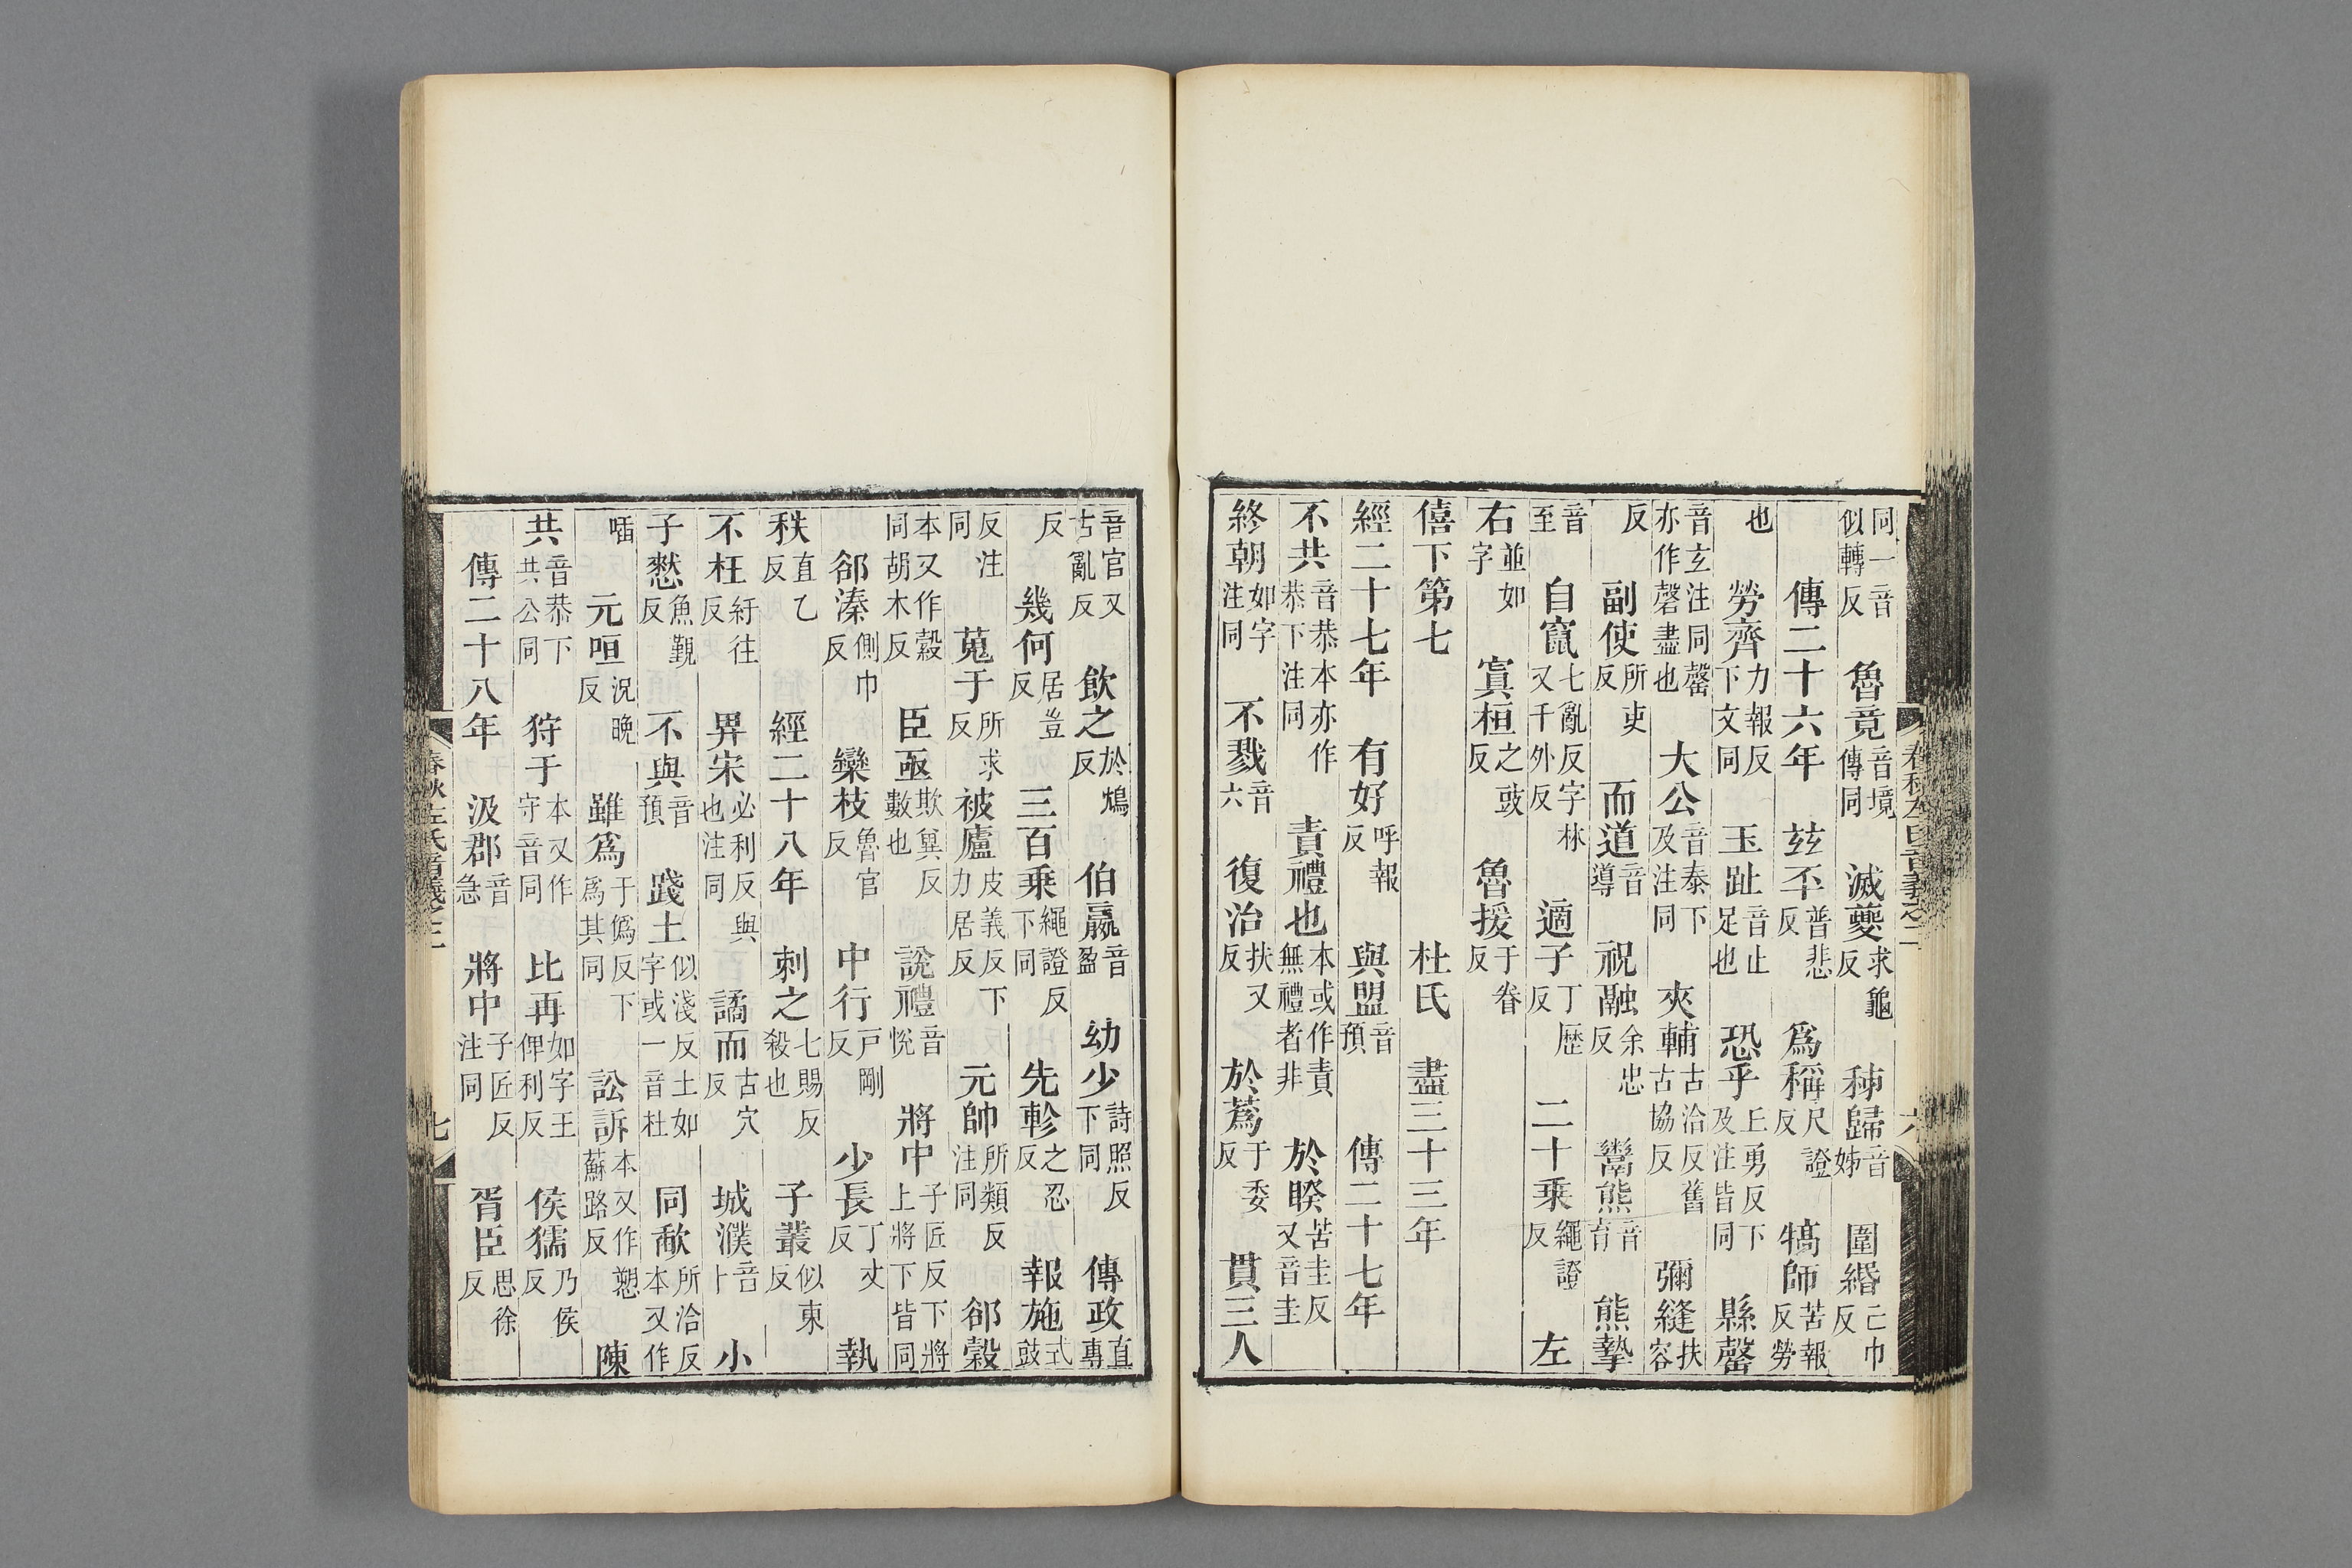 春秋左氏音義之二 六
同一音似轉反 魯竟音境傳同 滅夔求龜反 秭歸音姊 圍緡亡巾反
傳二十六年 玆丕普悲反 爲稱尺證反 犒師苦報反勞
也 勞齊力報反下文同 玉趾音止足也 恐乎丘勇反下及注皆同 縣罄
音玄注同罄亦作磬盡也 大公音泰下及注同 夾輔古洽反舊古協反 彌縫扶容
反 副使所吏反 而道音導 祝融余忠反 鬻熊音育 熊摯
音至 自竄七亂反字林又千外反 適子丁歷反 二十乘繩證反 左
右並如字 寘桓之豉反 魯援于眷反
僖下第七 杜氏 盡三十三年
經二十七年 有好呼報反 與盟音預 傳二十七年
不共音恭本亦作恭下注同 責禮也本或作責無禮者非 於睽苦圭反又音圭
終朝如字注同 不戮音六 復治扶又反 於蒍于委反 貫三人
音官又古亂反 飲之於鴆反 伯嬴音盈 幼少詩照反下同 傳政直專
反 幾何居豈反 三百乘繩證反下同 先軫之忍反 報施式豉
反注同 蒐于所求反 被廬皮義反下力居反 元帥所類反注同 郤縠
本又作縠同胡木反 臣亟欺兾反數也 說禮音悅 將中子匠反下將上將下皆同
郤溱側巾反 欒枝魯官反 中行戶剛反 少長丁丈反 執
秩直乙反 經二十八年 刺之七賜反殺也 子叢似東反
不枉紆往反 畀宋必利反與也注同 譎而古穴反 城濮音卜 小
子憖魚覲反 不與音預 踐土似淺反土如字或一音杜 同歃所洽反本又作
㗱 元咺況晚反 雖爲于僞反下爲其同 訟訴本又作愬蘇路反 陳
共音恭下共公同 狩于本又作守音同 比再如字王俾利反 侯獳乃侯反
傳二十八年 汲郡音急 將中子匠反注同 胥臣思徐反
春秋左氏音義之二 七